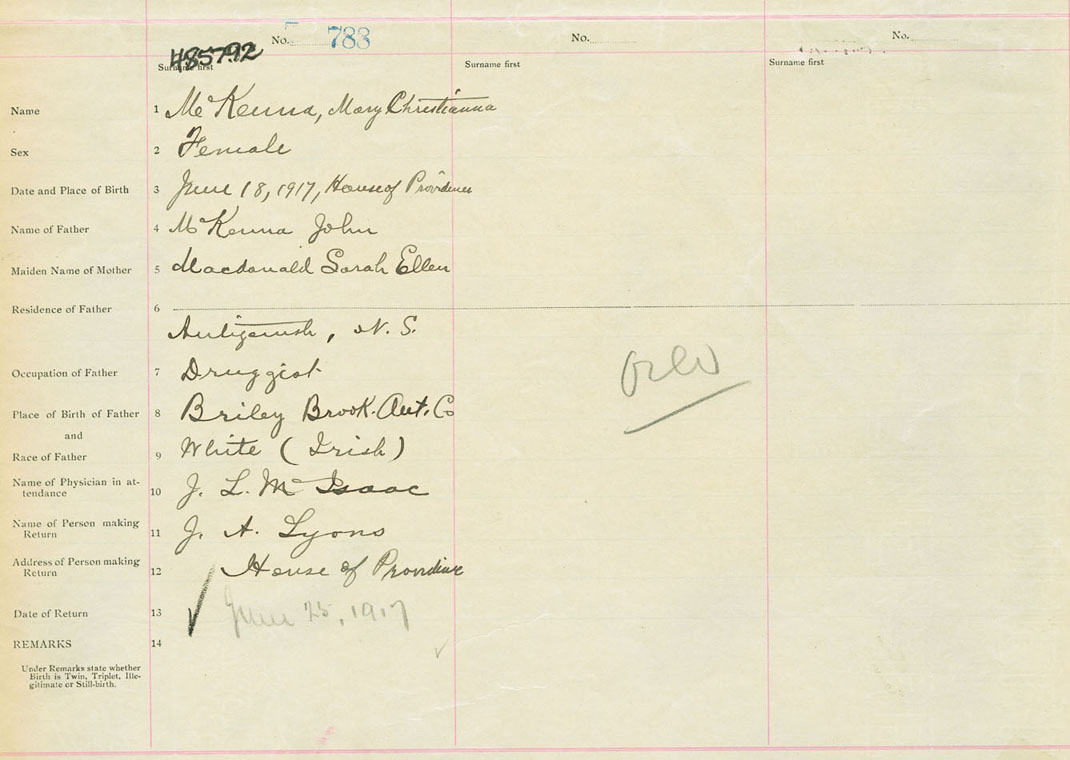 No. 783
No.
No.
485792
Surname first
Surname first
Surname first
Name 1 McKenna, Mary Christianna
Sex 2 Female
Date and Place of Birth 3 June 18, 1917, House of Providence
Name of Father 4 McKenna John
Maiden Name of Mother 5 Macdonald Sarah Ellen
Residence of Father 6
Antigonish, N. S.
Occupation of Father 7 Druggist
Place of Birth of Father 8 Briley Brook. Ant. Co
and
Race of Father 9 White (Irish)
Name of Physician in at-
tendance 10 J. L. McIsaac
Name of Person making
Return 11 J. A. Lyons
Address of Person making
Return 12 House of Providence
Date of Return 13 June 25, 1917
REMARKS 14
Under Remarks state whether
Birth is Twin, Triplet, Ille-
gitimate or Still-birth.